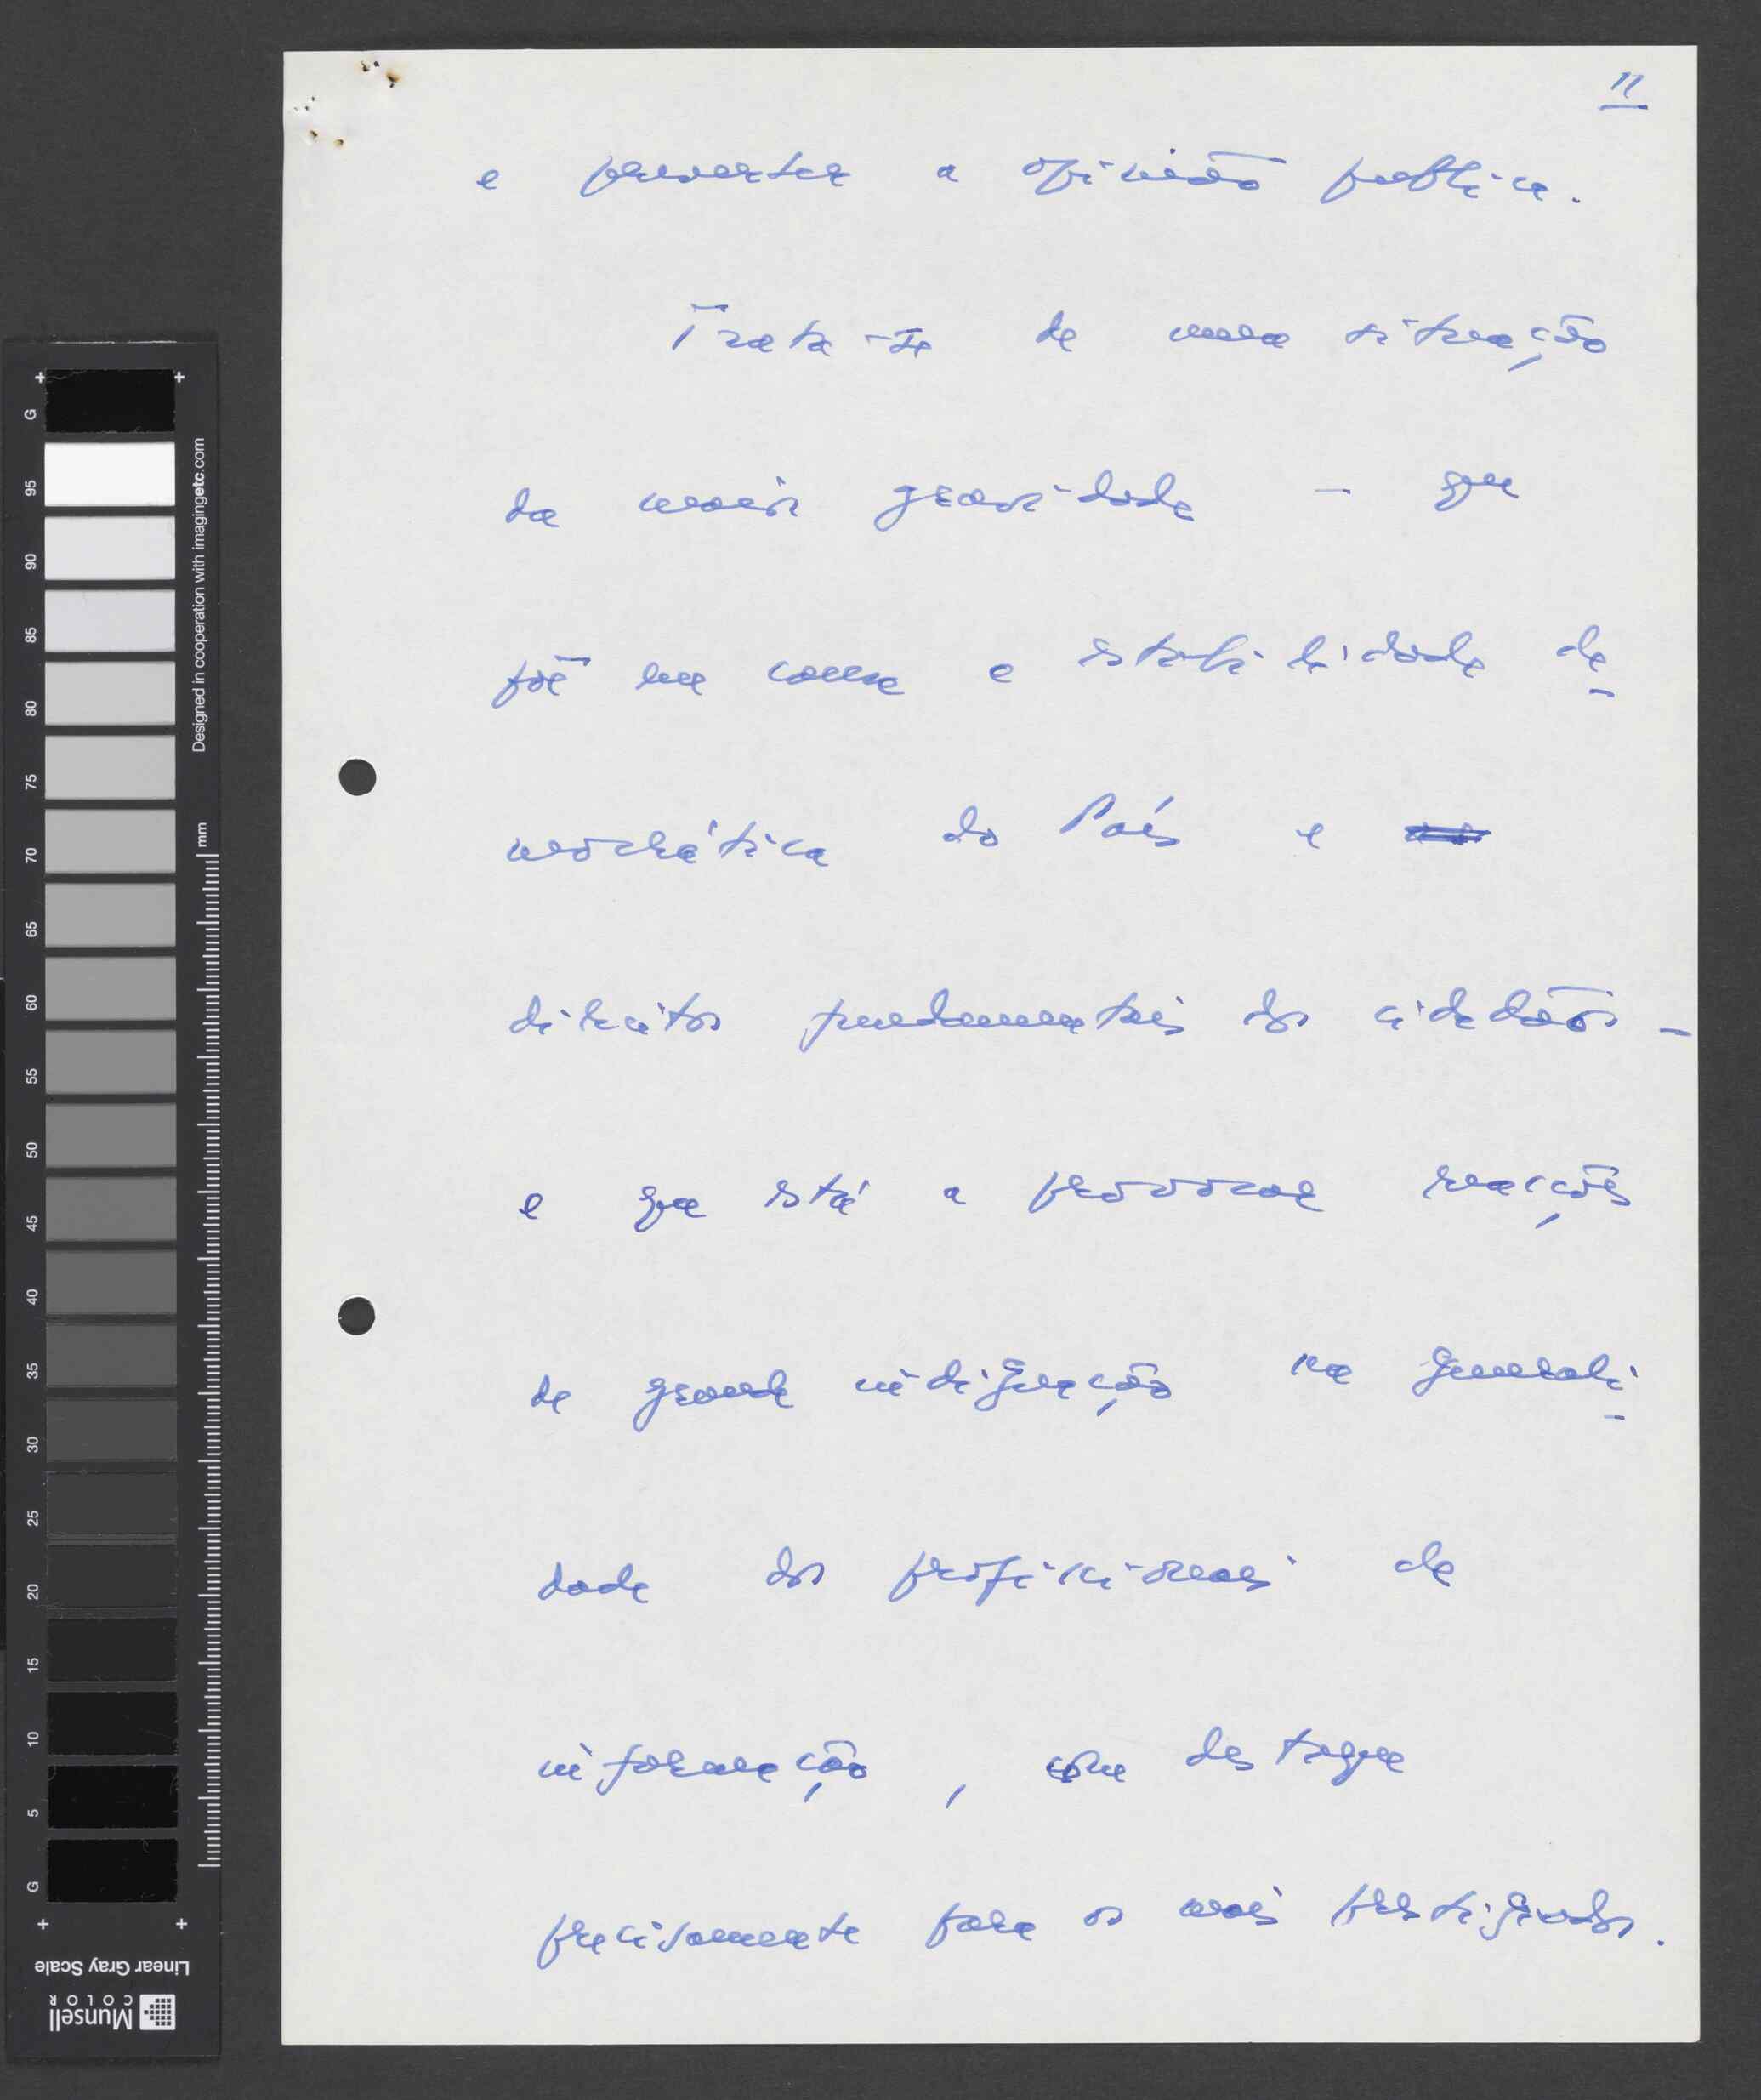 11
e perverter a opinião pública.
Trata-se de uma situação
da maior gravidade - que
põe em causa a estabilidade de-
mocrática do País e
direitos fundamentais dos cidadãos -
e que está a provocar reacções
de grande indignação na generali-
dade dos profissionais de
informação, com destaque
precisamente para os mais prestigiados.
G
95
90
85
80
75
70
65
60
55
50
45
40
35
30
25
20
15
10
5
G
Designed in cooperation with imagingetc.com
mm
Linear Gray Scale
Munsell
COLOR